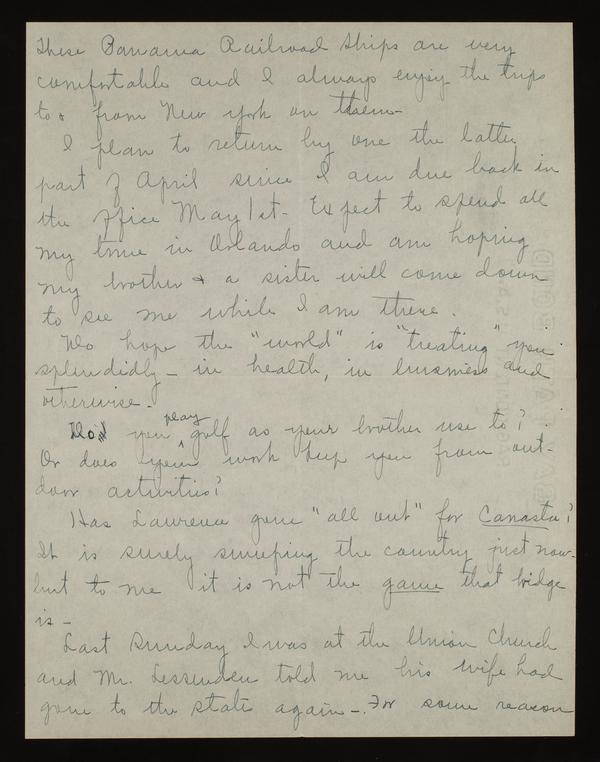 These Panama Railroad ships are very
comfortable and I always enjoy the trips
to & from New York on them -
I plan to return by one the latter
part of April since I am due back in
the office May 1st - Expect to spend all
my time in Orlando and am hoping
my brother & a sister will come down
to see me while I am there.
Do hope the "world" is "treating" you
splendidly - in health, in business and
otherwise -
Do you play golf as your brother use to?
Or does your work keep you from out-
door activities?
Has Laurence gone "all out" for Canasta?
It is surely sweeping the country just now -
but to me it is not the game that bridge
is -
Last Sunday I was at the Union Church
and Mr. Lessenden told me his wife had
gone to the states again -. For some reason